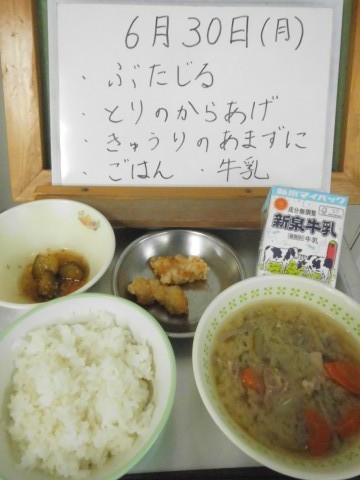 6月30日(月)
・ぶたじる
・とりのからあげ
・きゅうりのあまずに
・ごはん ・牛乳
成分無調整
新泉牛乳
牛乳